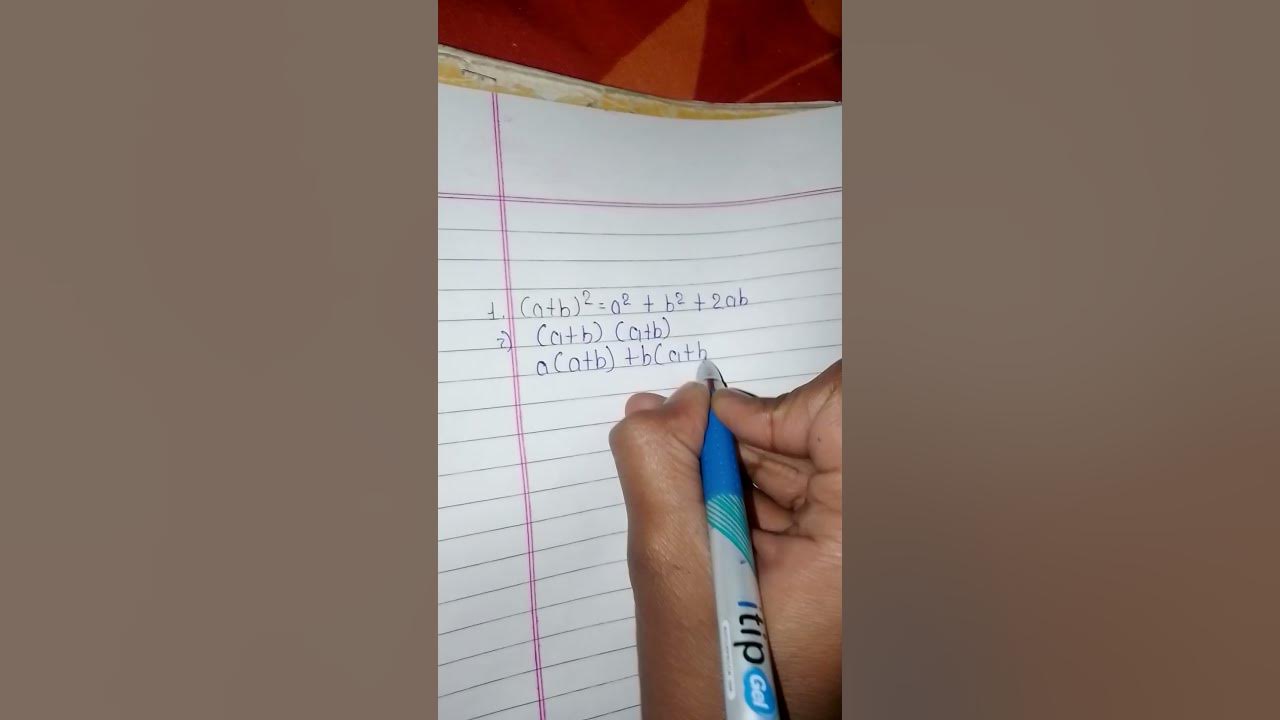 1. (a+b)² = a² + b² + 2ab
2) (a+b) (a+b)
a(a+b) + b(a+b
itip
Gel